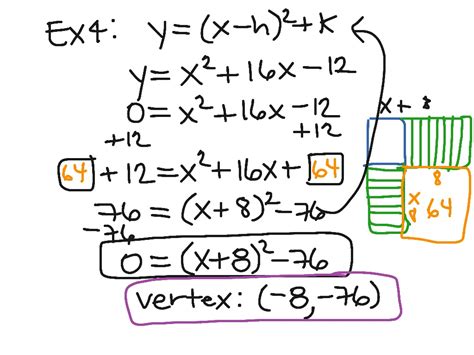 Ex4: y=(x-h)²+k
y=x²+16x-12
0=x²+16x-12
+12 +12
64 +12=x²+16x+ 64
76=(x+8)²-76
-76
0=(x+8)²-76
vertex: (-8,-76)
x+8
8
x 8 64